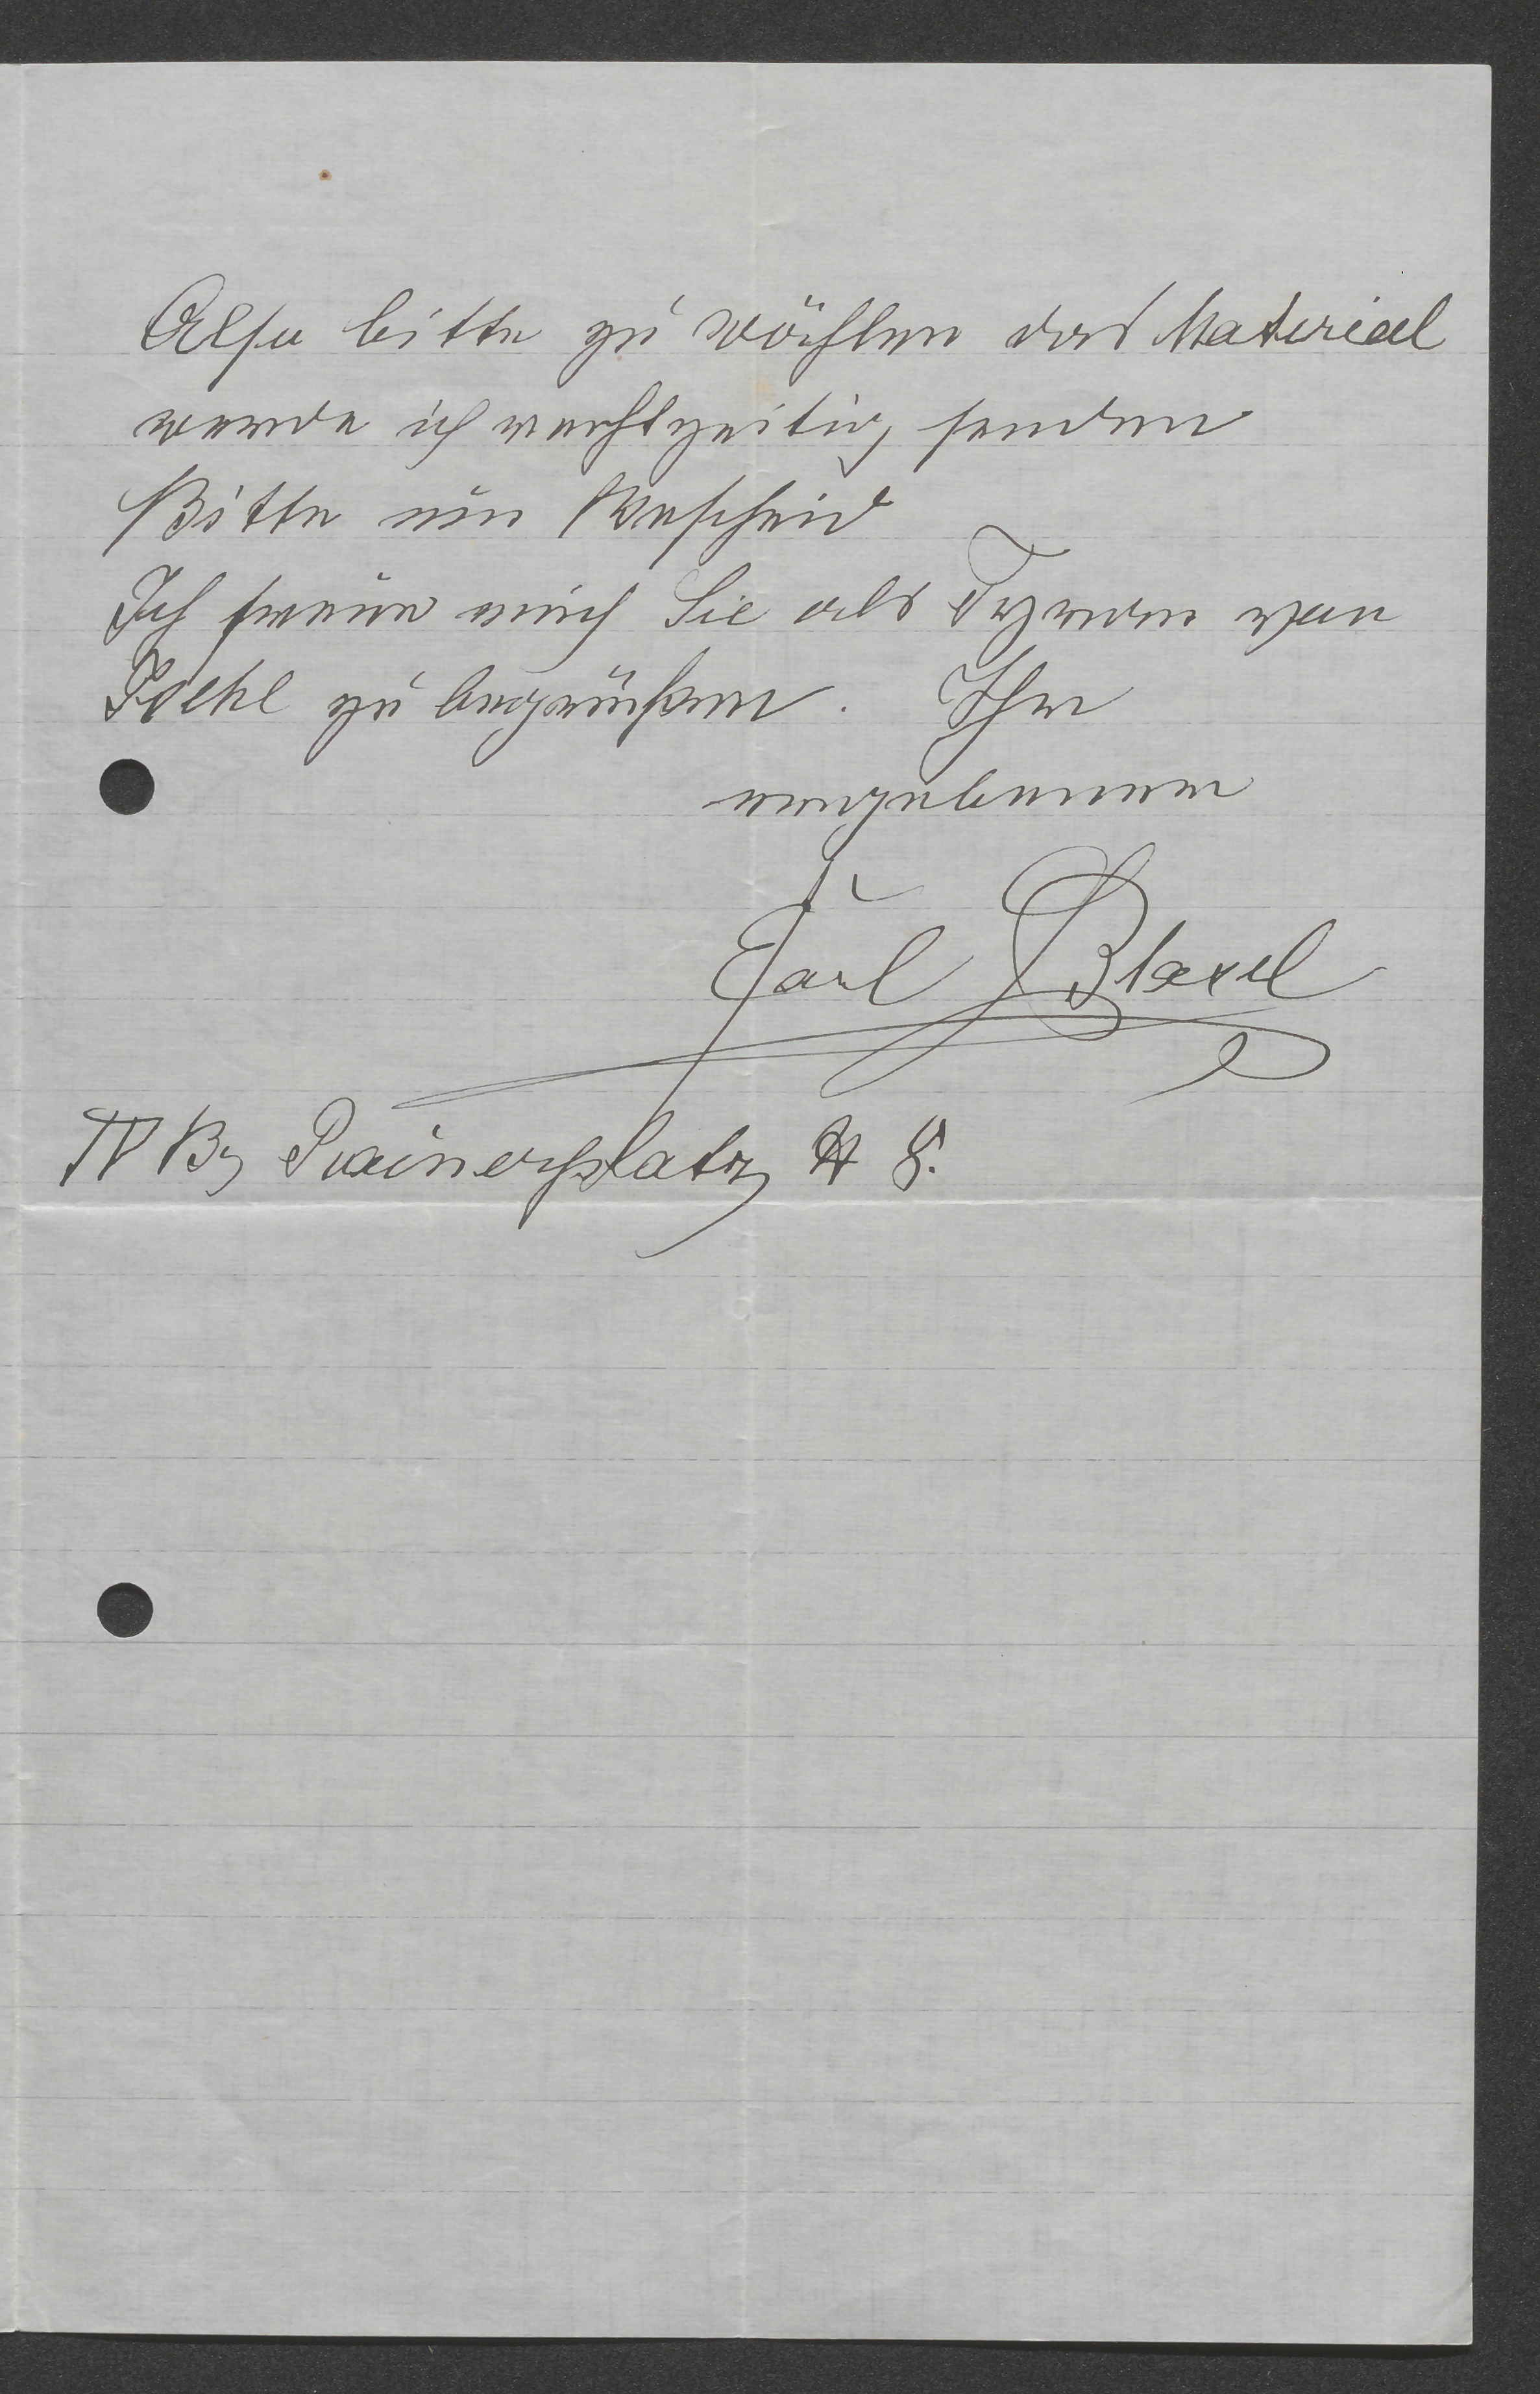 Also bitte zu wählen das Material
werde ich rechtzeitig senden
Bitte um Bescheid
Ich freue mich Sie als von
zu begrüßen. Ihr
ergebener
Carl Blasel
IV Bz Rainerplatz 8.